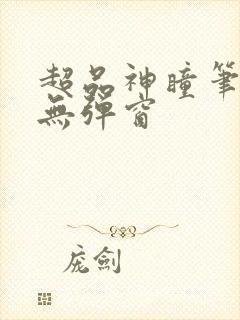 超品神瞳筆
無彈窗
庞劍